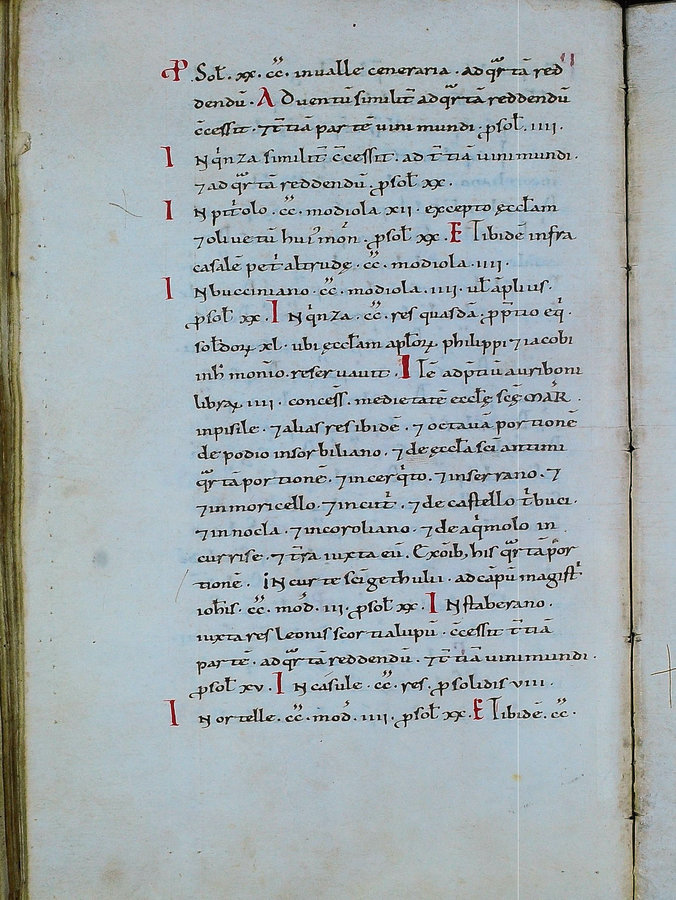 P Sol̄. xx. cc̄. in valle ceneraria. ad qr̄tā red
dendū. Aduentū similit̄ ad qr̄tā reddendū
c̄cessit. ⁊ t̄tiā partē vini mundi. ꝓ sol̄. IIII.
IN qⁱnza similit̄ c̄cessit. ad t̄tiā vini mundi.
⁊ ad qr̄tā reddendū. ꝓ sol̄ xx.
IN pit̄olo. cc̄. modiola XII. excepto ęccl̄am
⁊ oliuetū huiꝰ mon̄. ꝓ sol̄ xx. ET ibidē infra
casalē pet̄ altrudę. cc̄. modiola. IIII.
IN bucciniano. cc̄. modiola. IIII. ul̄ āpliuſ.
ꝓ sol̄ xx. IN qⁱnza. cc̄. res quasdā. ꝓ p̄tio eqⁱ.
sol̄doꝝ XL. ubi ęccl̄am apl̄oꝝ philippi ⁊ iacobi
inh̄ monio. reseruauit. ITē ad p̄tiū auri boni
libraꝝ IIII. concess̄. medietatē eccl̄ę scę̄ MAR̄.
in pisile. ⁊ alias res ibidē. ⁊ octauā portionē
de podio in sorbiliano. ⁊ de ęccl̄a sc̄i antimi
qr̄tā portionē. ⁊ in cerqⁱto. ⁊ in serrano. ⁊
⁊ in moricello. ⁊ in cur̄t. ⁊ de castello t̄buci.
⁊ in nocla. ⁊ in coroliano. ⁊ de aqⁱmolo in
currise. ⁊ t̄ra iuxta eū. Ex oīb; his qr̄tā por
tionē. IN curte sc̄i gethulii. ad cāpū magist̄
ioh̄is. cc̄. mod̄. III. ꝓ sol̄ xx. IN staberano.
iuxta res leonis scortialupū. c̄cessit t̄tiā
partē. ad qr̄tā reddendū. ⁊ t̄tiā uini mundi.
ꝓ sol̄ XV. IN casule. cc̄. res. ꝓ solidis VIII.
IN ortelle. cc̄. mod̄. IIII. ꝓ sol̄ xx. ET ibidē. cc̄.